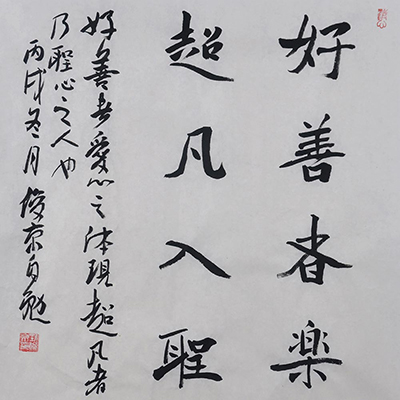 好善者楽
超凡入聖
好善者愛心之体現超凡者
乃聖心之人也
丙戌冬月俊京自勉